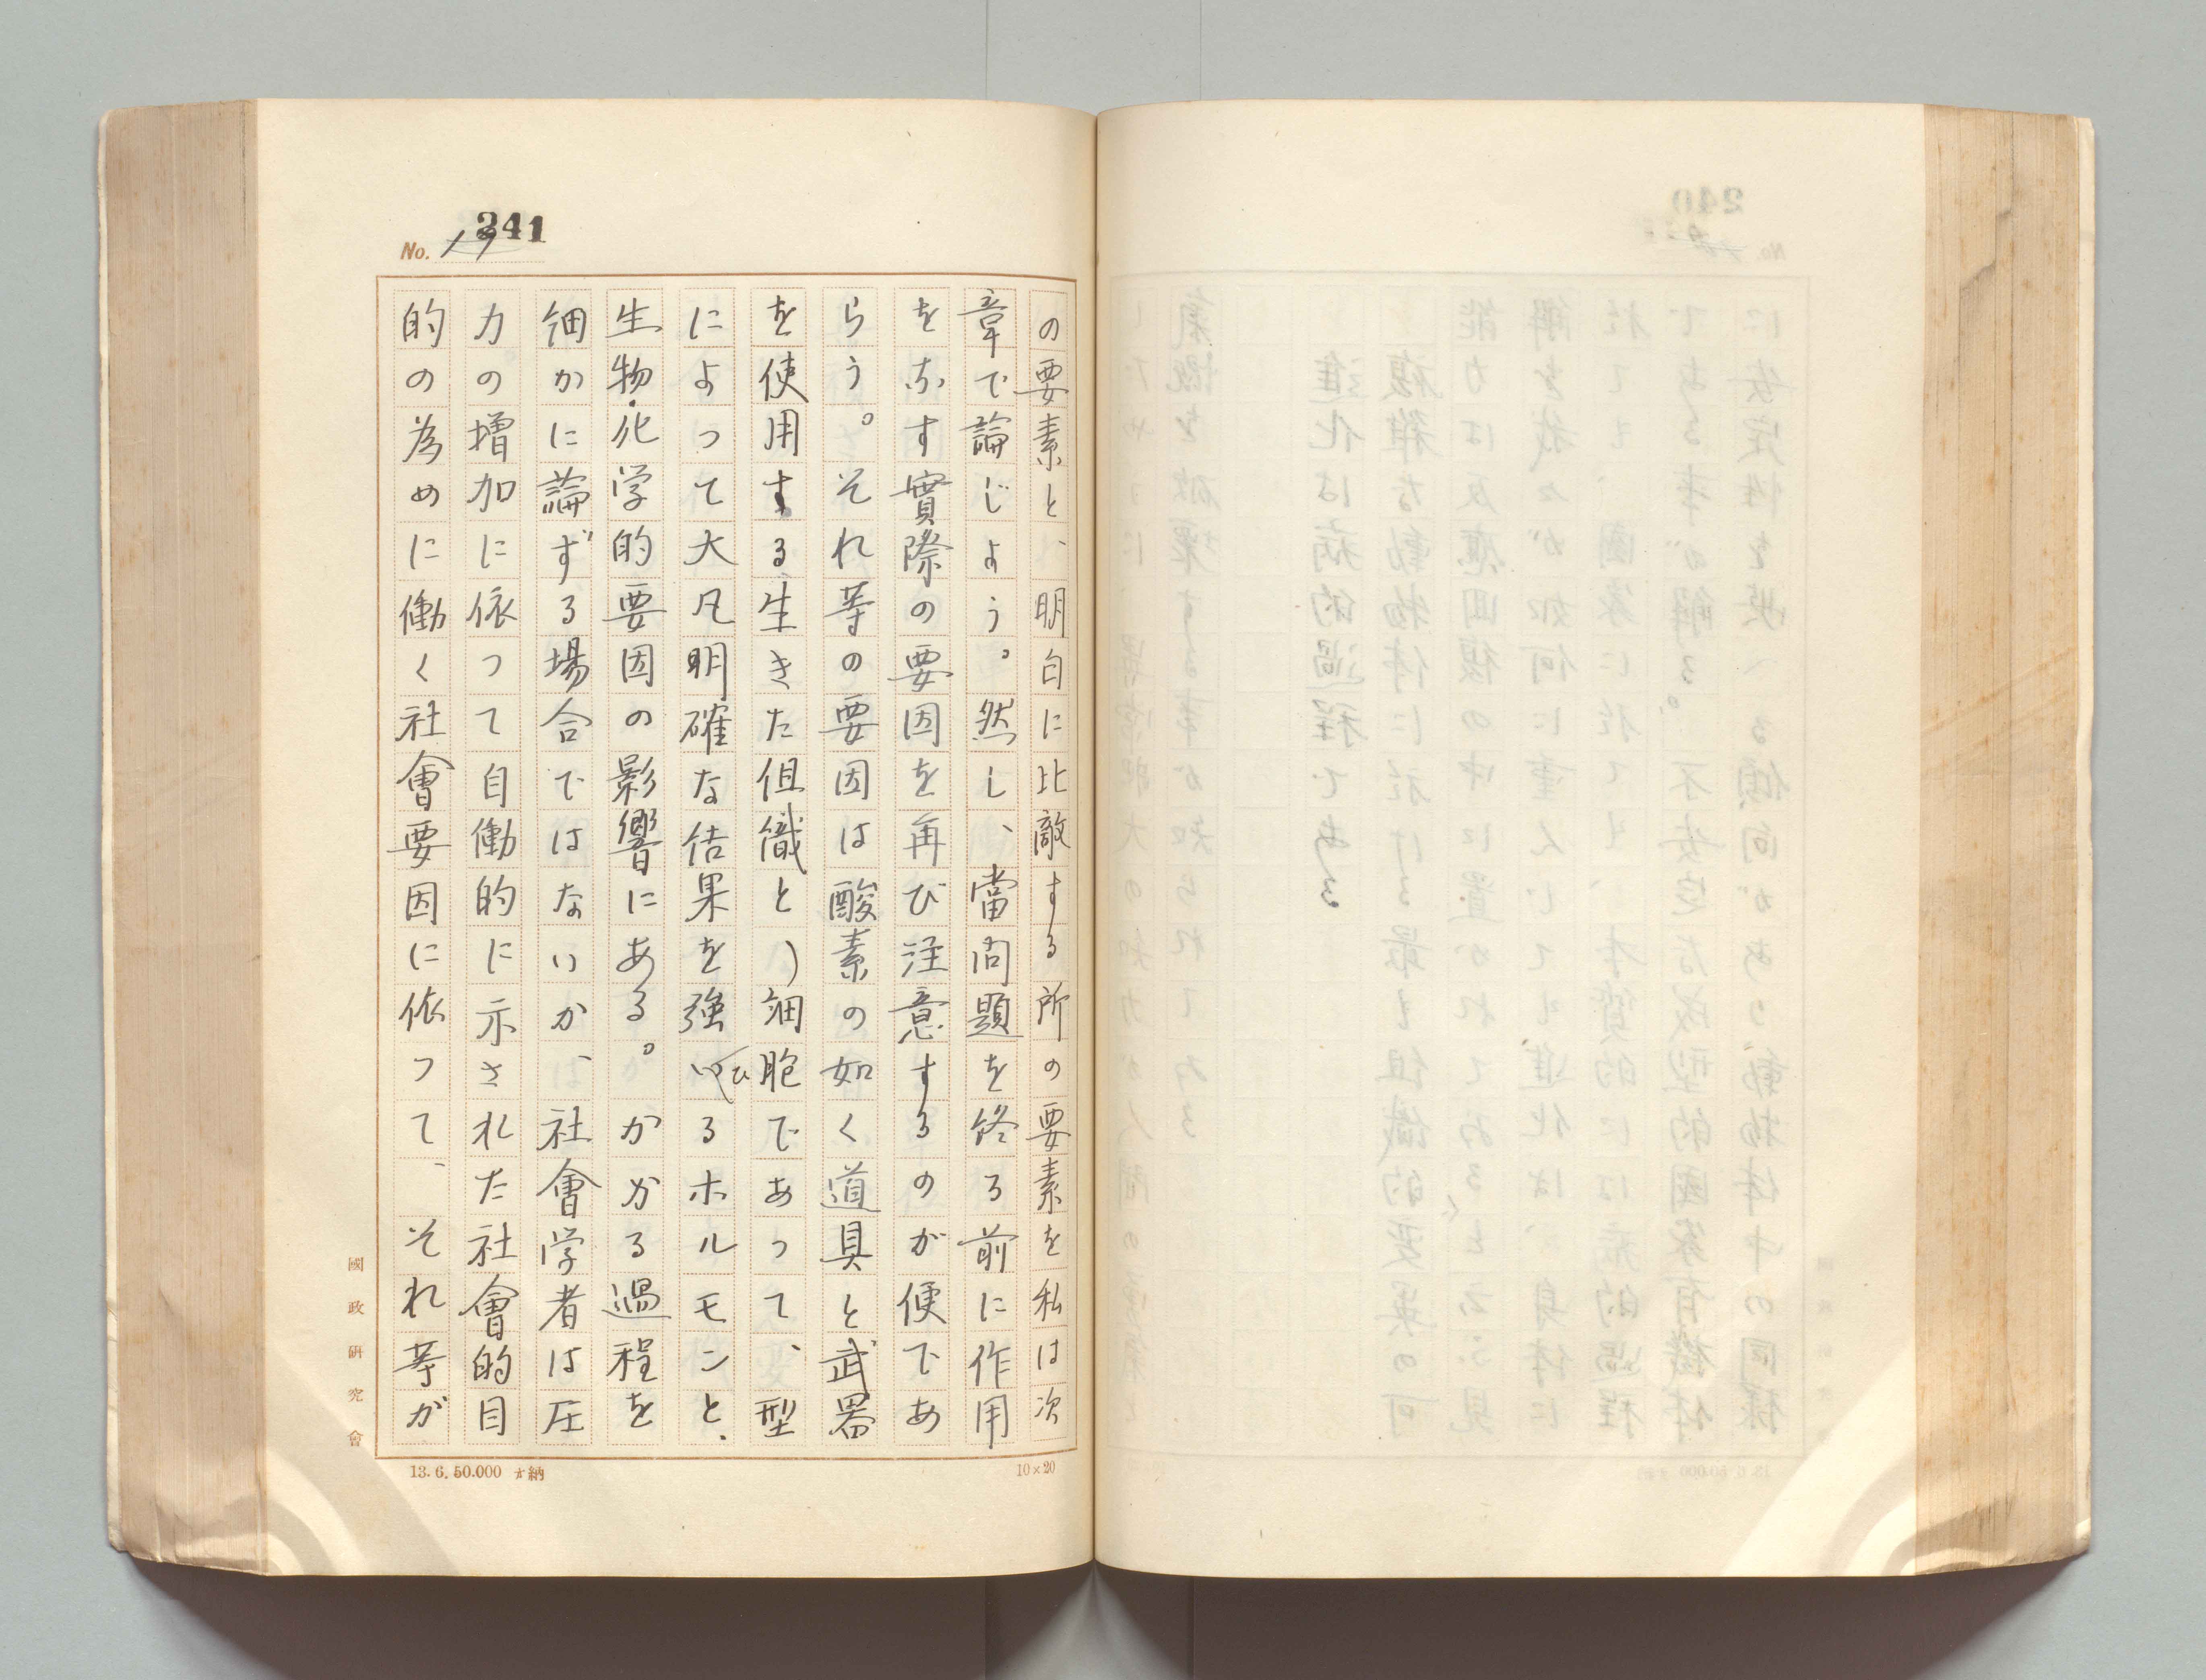 No. 241
の要素と、明白に比敵する所の要素を私は次
章で論じよう。然し、當問題を終る前に作用
をなす實際の要因を再び注意するのが便であ
らう。それ等の要因は酸素の如く道具と武器
を使用する、生きた組織と)細胞であって、型
によって大凡明確な結果を強いるホルモンと、
生物・化学的要因の影響にある。かかる過程を
細かに論ずる場合ではないか、社會学者は圧
力の増加に依って自働的に示された社會的目
的の為めに働く社會要因に依って、それ等が
國政研究會
13.6.50.000 納
10×20